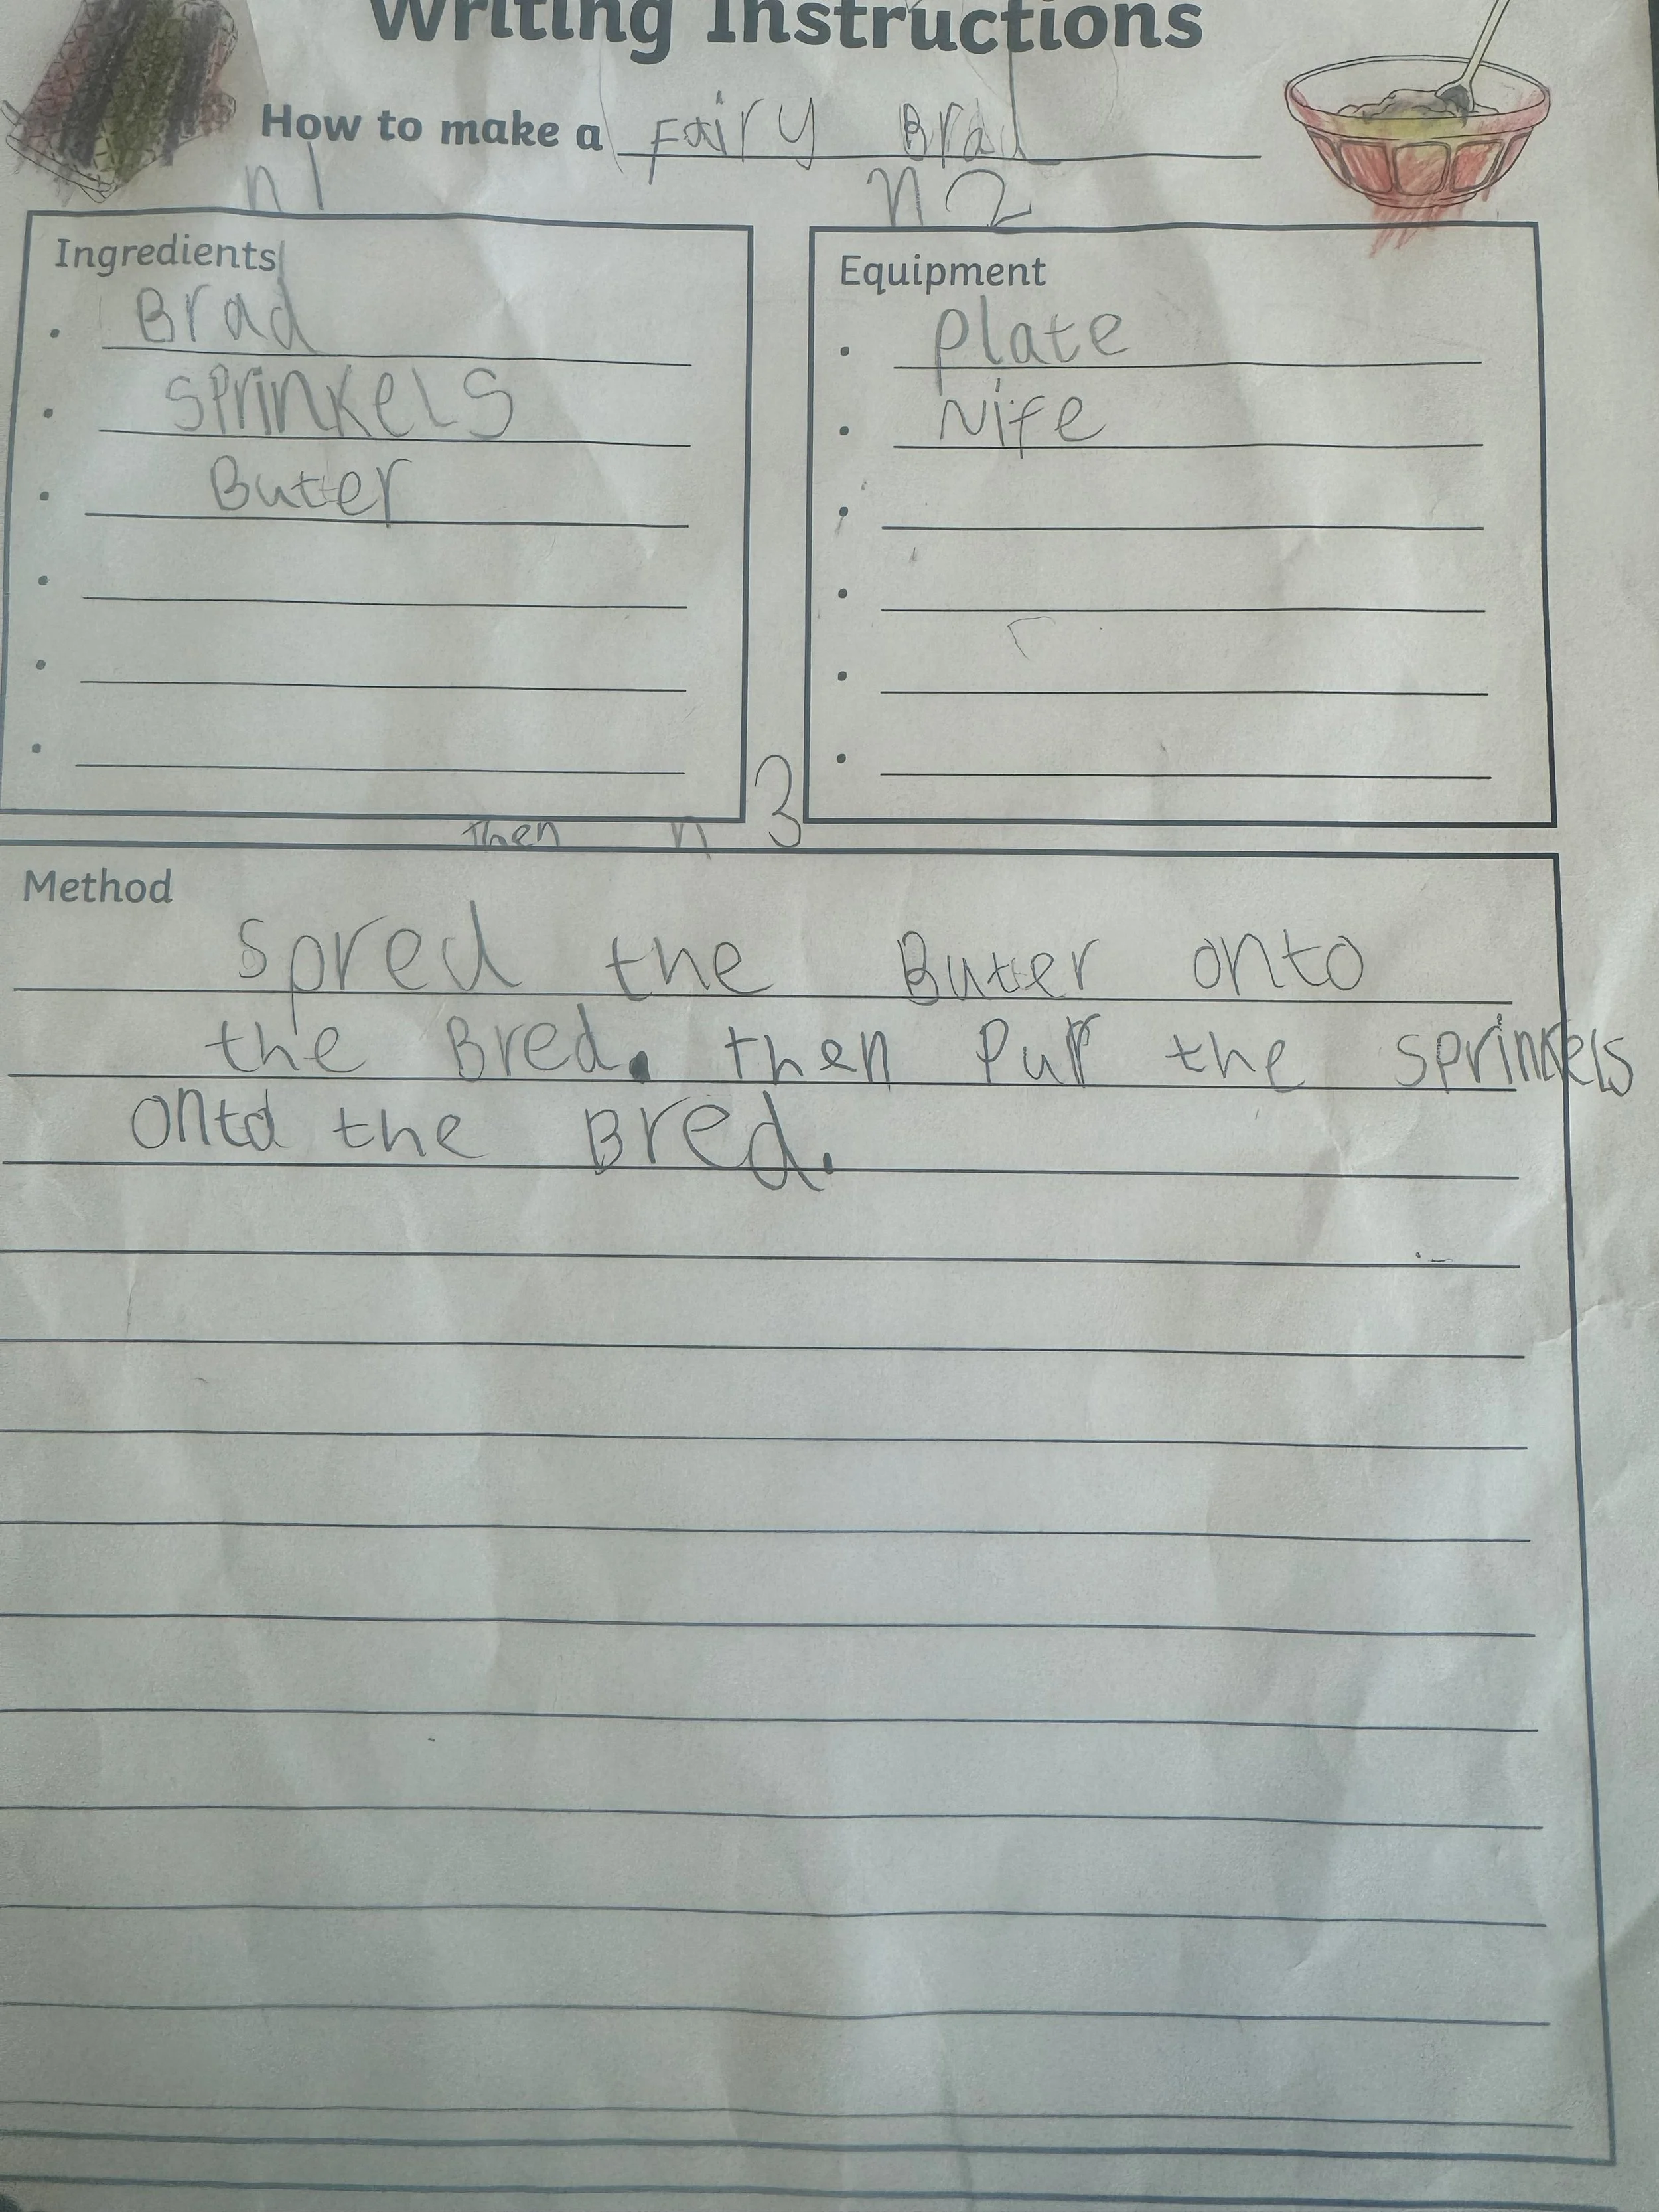 Writing Instructions
How to make a Fairy Brad
n1
n2
Ingredients
Brad
Sprinkels
Buter
Equipment
Plate
Nife
then n 3
Method
Spred the Buter onto
the Bred. then Put the sprinkels
onto the Bred.